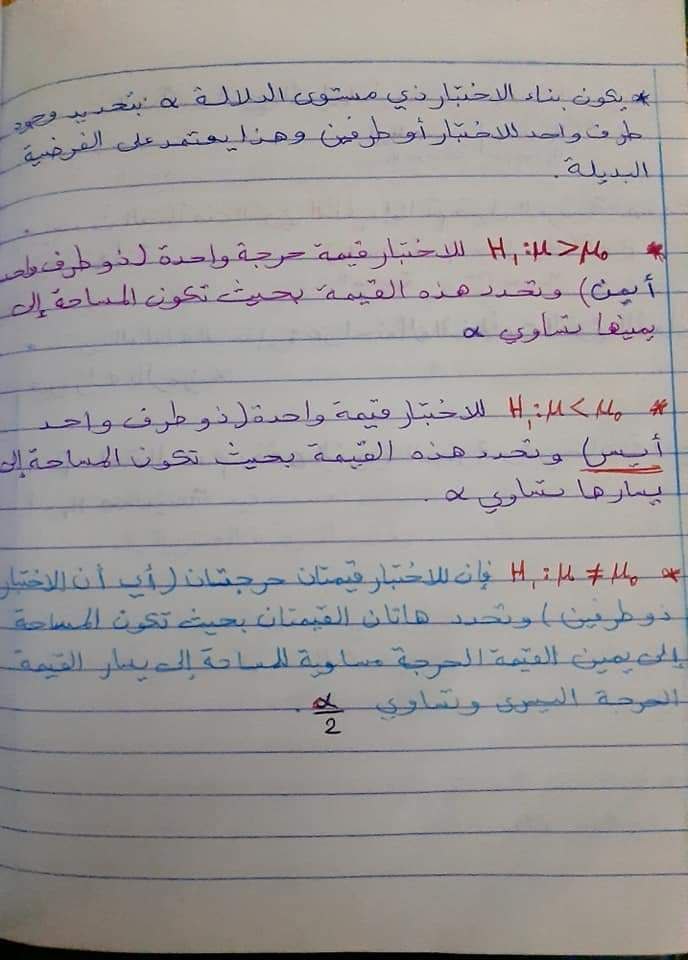 * يكون بناء الاختبار ذي مستوى الدلالة α بتحديد وجود
طرف واحد للاختبار أو طرفين وهذا يعتمد على الفرضية
البديلة.
* H₁:μ>μ₀ للاختبار قيمة حرجة واحدة (ذو طرف واحد
أيمن) وتحدد هذه القيمة بحيث تكون المساحة إلى
يمينها تساوي α
* H₁:μ<μ₀ للاختبار قيمة واحدة (ذو طرف واحد
أيسر) وتحدد هذه القيمة بحيث تكون المساحة إلى
يسارها تساوي α.
* H₁:μ≠μ₀ فإن للاختبار قيمتان حرجتان (أي أن الاختبار
ذو طرفين) وتحدد هاتان القيمتان بحيث تكون المساحة
إلى يمين القيمة الحرجة مساوية للمساحة إلى يسار القيمة
الحرجة اليسرى وتساوي α/2.